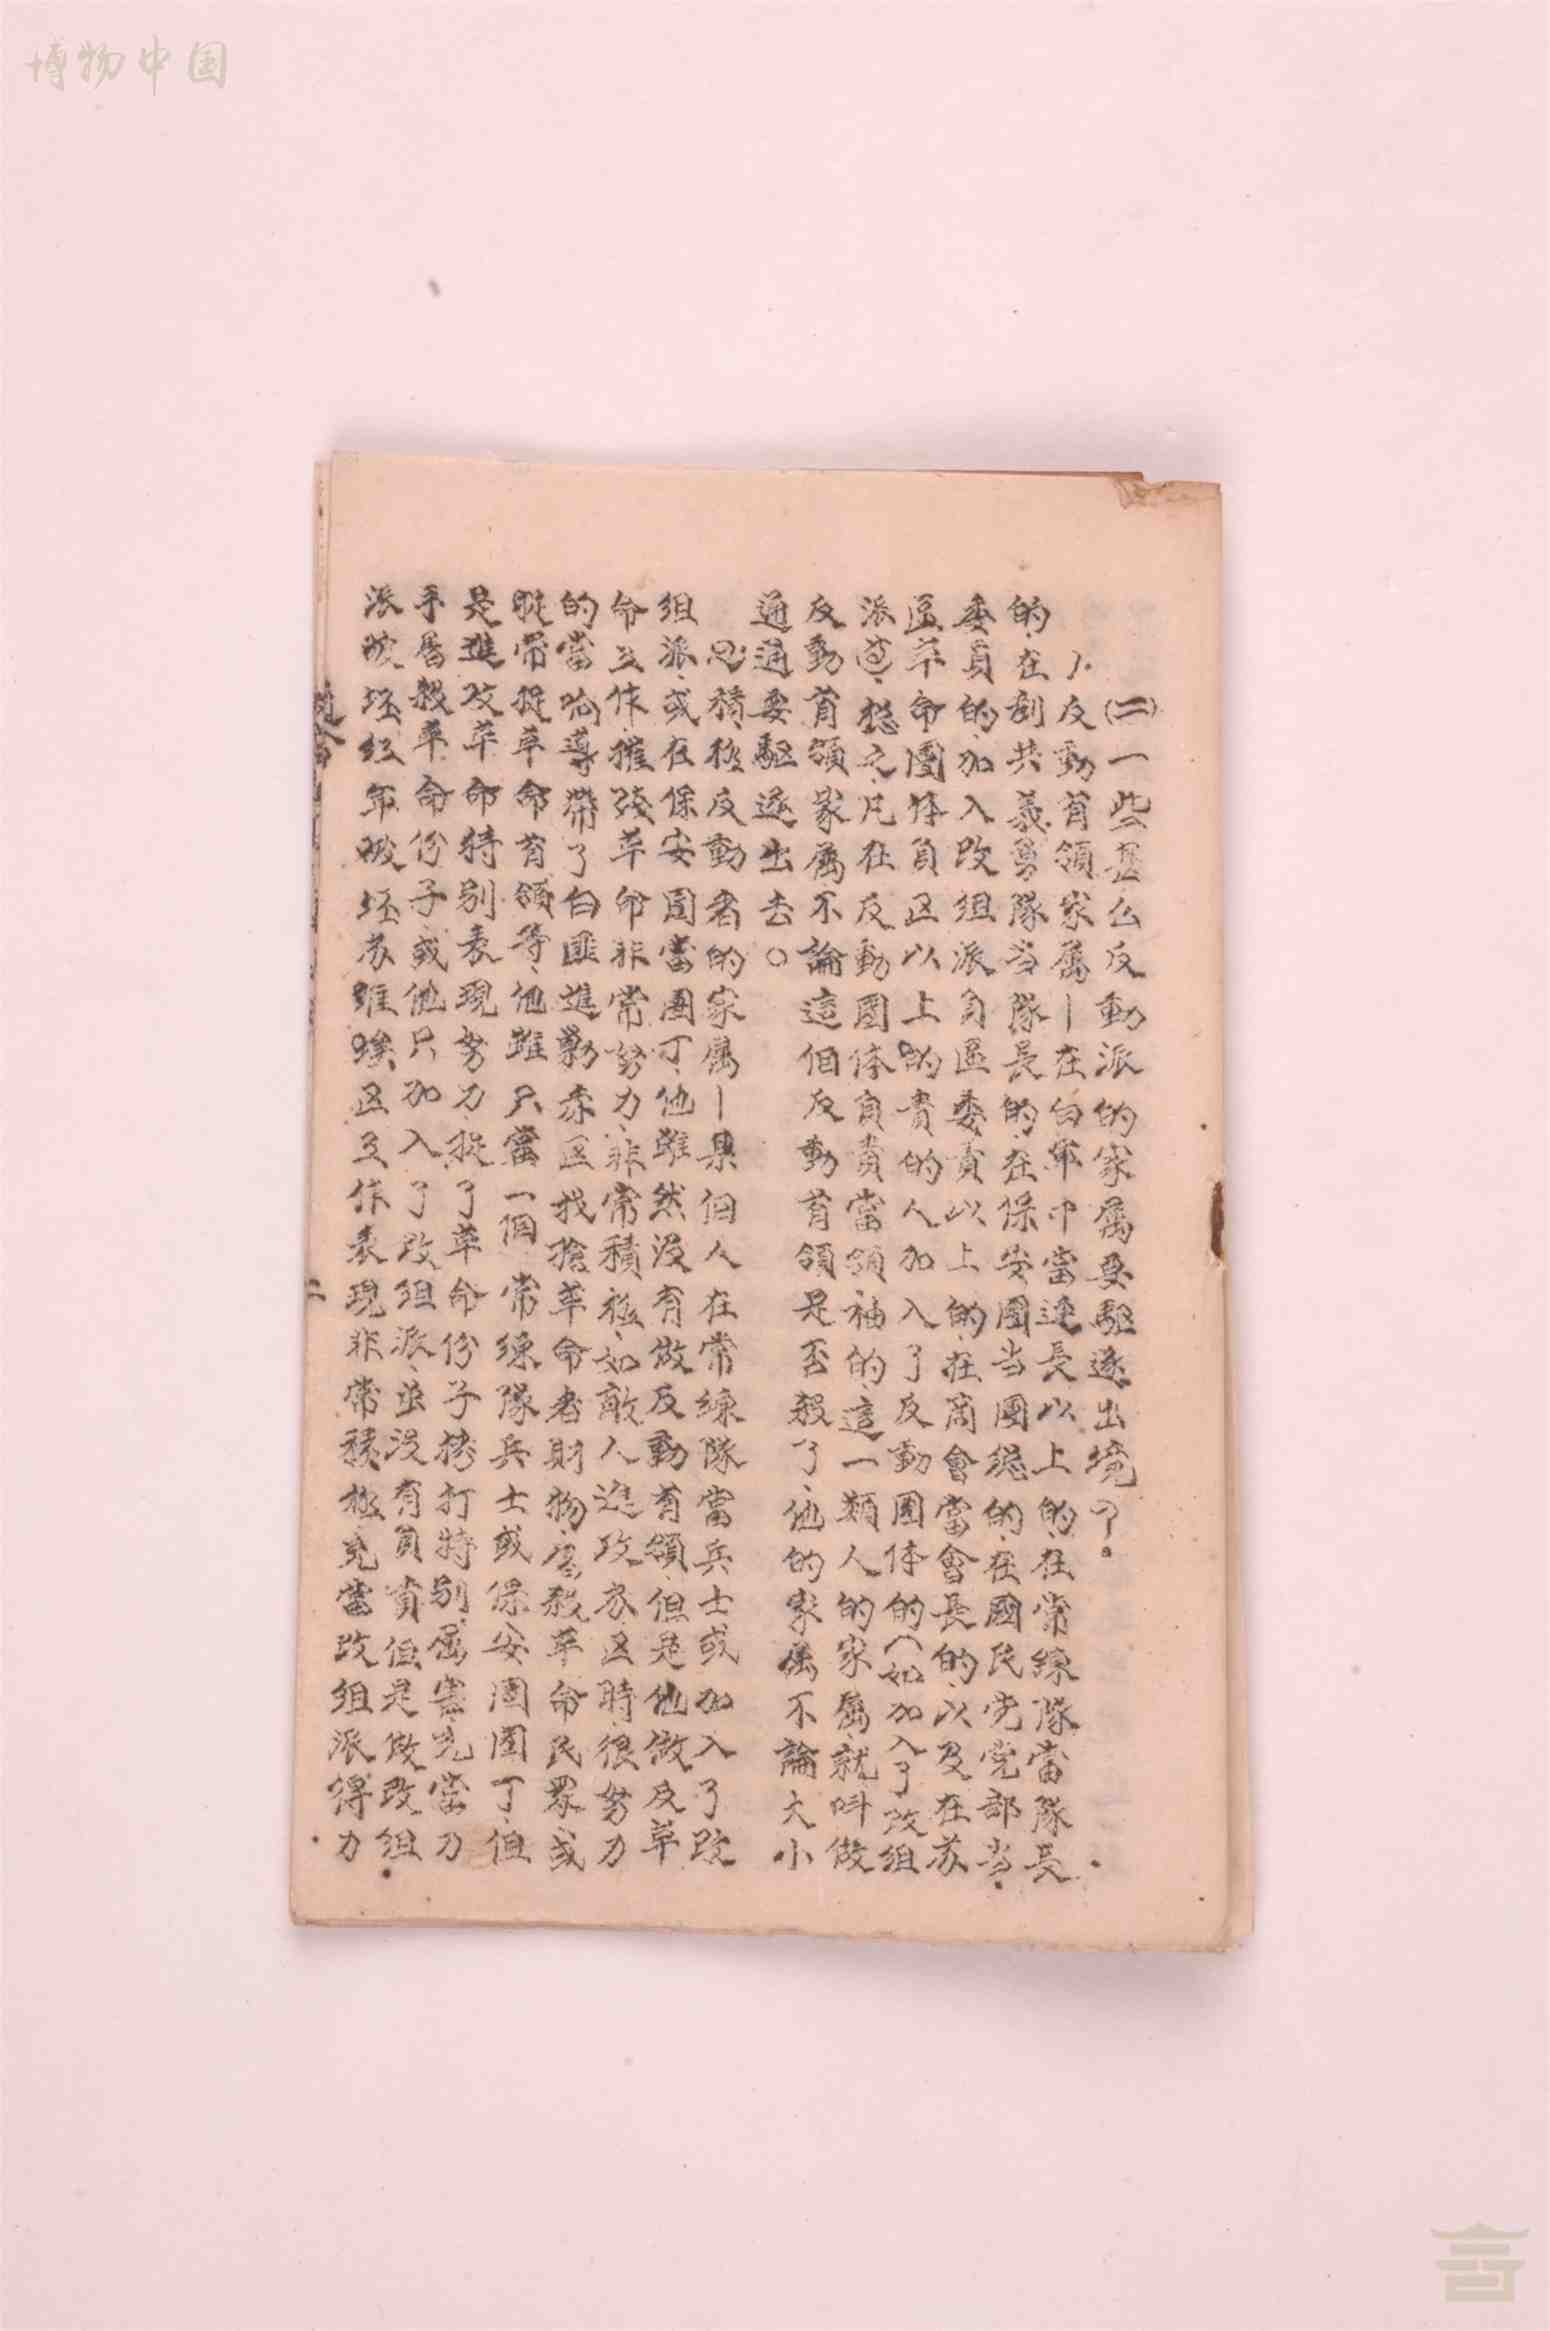 博物中国
(二)一些甚么反動派的家属要驱逐出境？
1.反動首領家属—在白軍中當連長以上的、在常練隊當隊長
的、在剷共義勇隊当隊長的、在保安團当團總的、在國民党党部当
委員的、加入改組派負區委責以上的、在商會當會長的、以及在苏
區革命團体負区以上的責的人加入了反動團体的(如加入了改組
派)总之、凡在反動團体負責當領袖的、這一類人的家属、就叫做
反動首領家属、不論這個反動首領是否殺了、他的家属不論大小
通通要驱逐出去。
积極反動者的家属—某個人在常練隊當兵士或加入了改
組派、或在保安團當團丁、他雖然没有做反動首領、但是他做反革
命工作、摧残革命非常努力、非常積極、如敵人進攻苏区時、很努力
的當响導、帶了白匪進勦赤区、找搶革命者財物、屠殺革命民眾、或
常捉革命首領等、他雖只當一個常練隊兵士或保安團團丁、但
是進攻革命特别表現努力、捉了革命份子拷打特别厲害、充當刀
手屠殺革命份子、或他只加入了改組派、並没有負責、但是做改組
派的工作表現非常積極、充當改組派得力
二